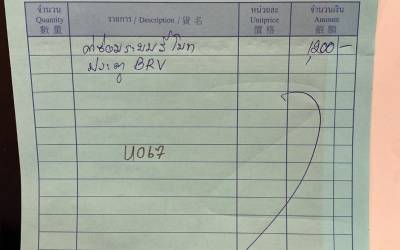 จำนวน Quantity 數量
รายการ / Description / 貨名
หน่วยละ Unitprice 價格
จำนวนเงิน Amount 銀額
ค่าซ่อมระบบรีโมท 1,200 —
ประตู BRV
U067